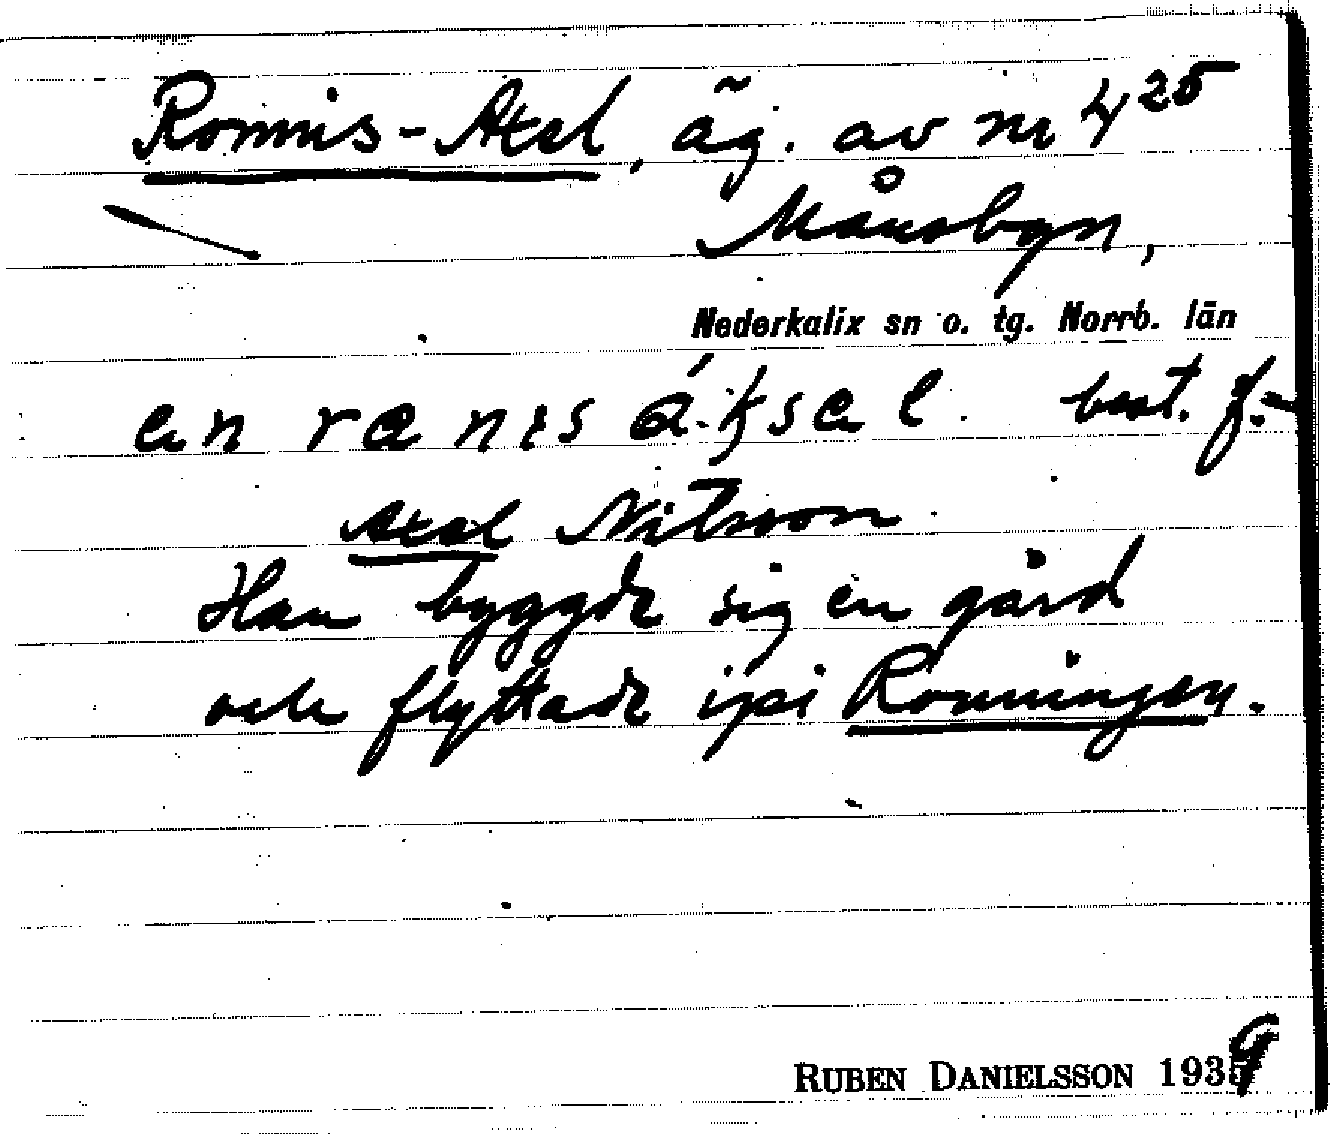 Ronnis-Axel, äg. av nr 4²⁵
Månsbyn,
Nederkalix sn o. tg. Norrb. län
en rænɪs á.ksel. best. f.
Axel Nilsson.
Han byggde sig en gård
och flyttade ipi Ronningen.
RUBEN DANIELSSON 1939